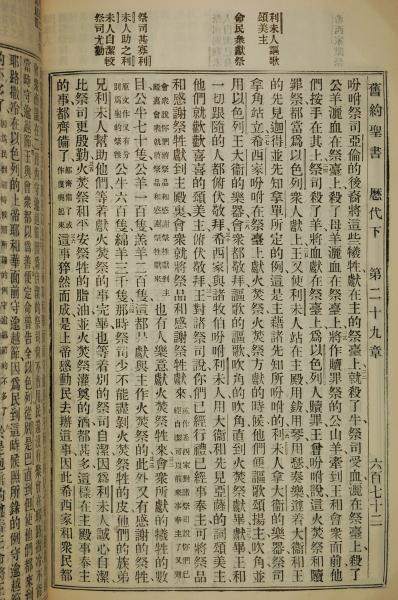 利未人謳歌
頌美主
命民衆獻祭
祭司甚寡利
未人助之利
未人自潔較
祭司尤勤
舊約聖書 歷代下 第二十九章 六百七十二
吩咐祭司亞倫的後裔將這些犧牲獻在主的祭臺上就殺了牛祭司受血灑在祭臺上殺了
公羊灑血在祭臺上殺了母羊灑血在祭臺上將作贖罪祭的公山羊牽到王和會衆面前他
們按手在其上祭司殺了羊將血獻在祭臺上爲以色列人贖罪王曾吩咐說這火焚祭和贖
罪祭都當爲以色列衆人獻上王又使利未人站在主殿用鈸用琴用瑟奏樂遵着大衞和王
的先見迦得並先知拿單所定的例這是主藉諸先知所吩咐的利未人拿大衞的樂器祭司
拿角站立希西家吩咐在祭臺上獻火焚祭火焚祭方獻的時候他們便謳歌頌揚主吹角並
用以色列王大衞的樂器會衆都敬拜謳歌的謳歌吹角的吹角直到火焚祭獻畢獻畢王和
一切跟隨的人都俯伏敬拜希西家與諸牧伯吩咐利未人用大衞和先見亞薩的詞頌美主
他們就歡歡喜喜的頌美主俯伏敬拜王對諸祭司說你們已經行禮已經事奉主可將祭品
和感謝祭牲獻到主殿裏會衆就將祭品和感謝祭牲獻來
也有人樂意獻火焚祭牲來會衆所獻的犧牲的數
目公牛七十隻公羊一百隻羔羊二百隻這都是獻與主作火焚祭的此外又有感謝的祭牲
公牛六百隻綿羊三千隻那時祭司少不能盡剝火焚祭牲的皮他們的族弟
兄利未人幫助他們等着獻火焚祭的事完畢也等着別的祭司自潔因爲利未人誠心自潔
比祭司更殷勤火焚祭和平安祭牲的脂油並火焚祭灌奠的酒都甚多這樣在主殿事奉主
的事都齊備了這事猝然而成是上帝感動民去辦這事因此希西家和衆民都